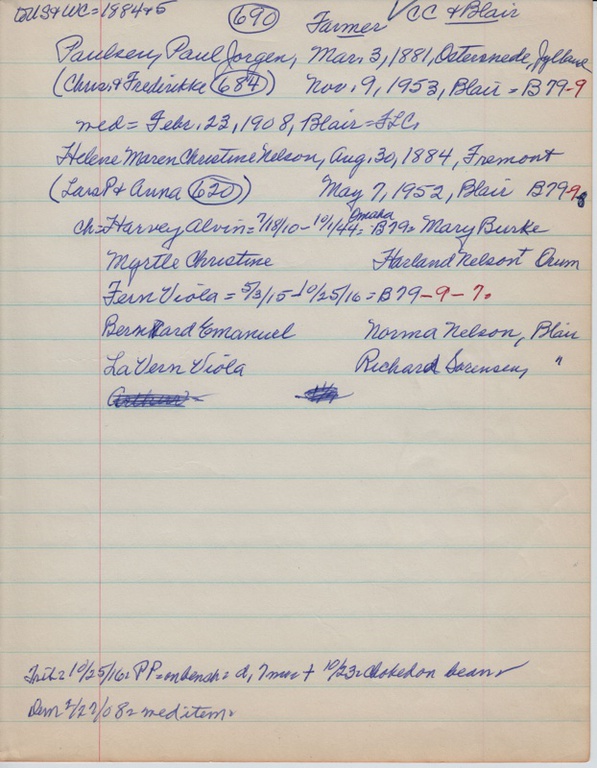 TUS & WC = 1884 & 5 690 Farmer ✓CC & Blair
Paulsen, Paul Jorgen, Mar. 3, 1881, Jylland
(Chris. & Fredirikke 684) Nov. 9, 1953, Blair = B79-9
wed = Febr. 23, 1908, Blair = FLC.
Helene Maren Christine Nelson, Aug. 30, 1884, Fremont
(Lars P & Anna 620) May 7, 1952, Blair B79-9
ch = Harvey Alvin = 7/18/10 - 10/1/44 = Omaha = B79 = Mary Burke
Myrtle Christine Harland Nelson + Orum
Fern Viola = 5/3/15 - 10/25/16 = B79-9-7.
Bernard Emanuel Norma Nelson, Blair
LaVern Viola Richard Sorensen, "
Arthur
Trib = 10/25/16 = PP = = d, 7 mi + 10/23 = choked on bean
Dem 2/27/08 = wed item =